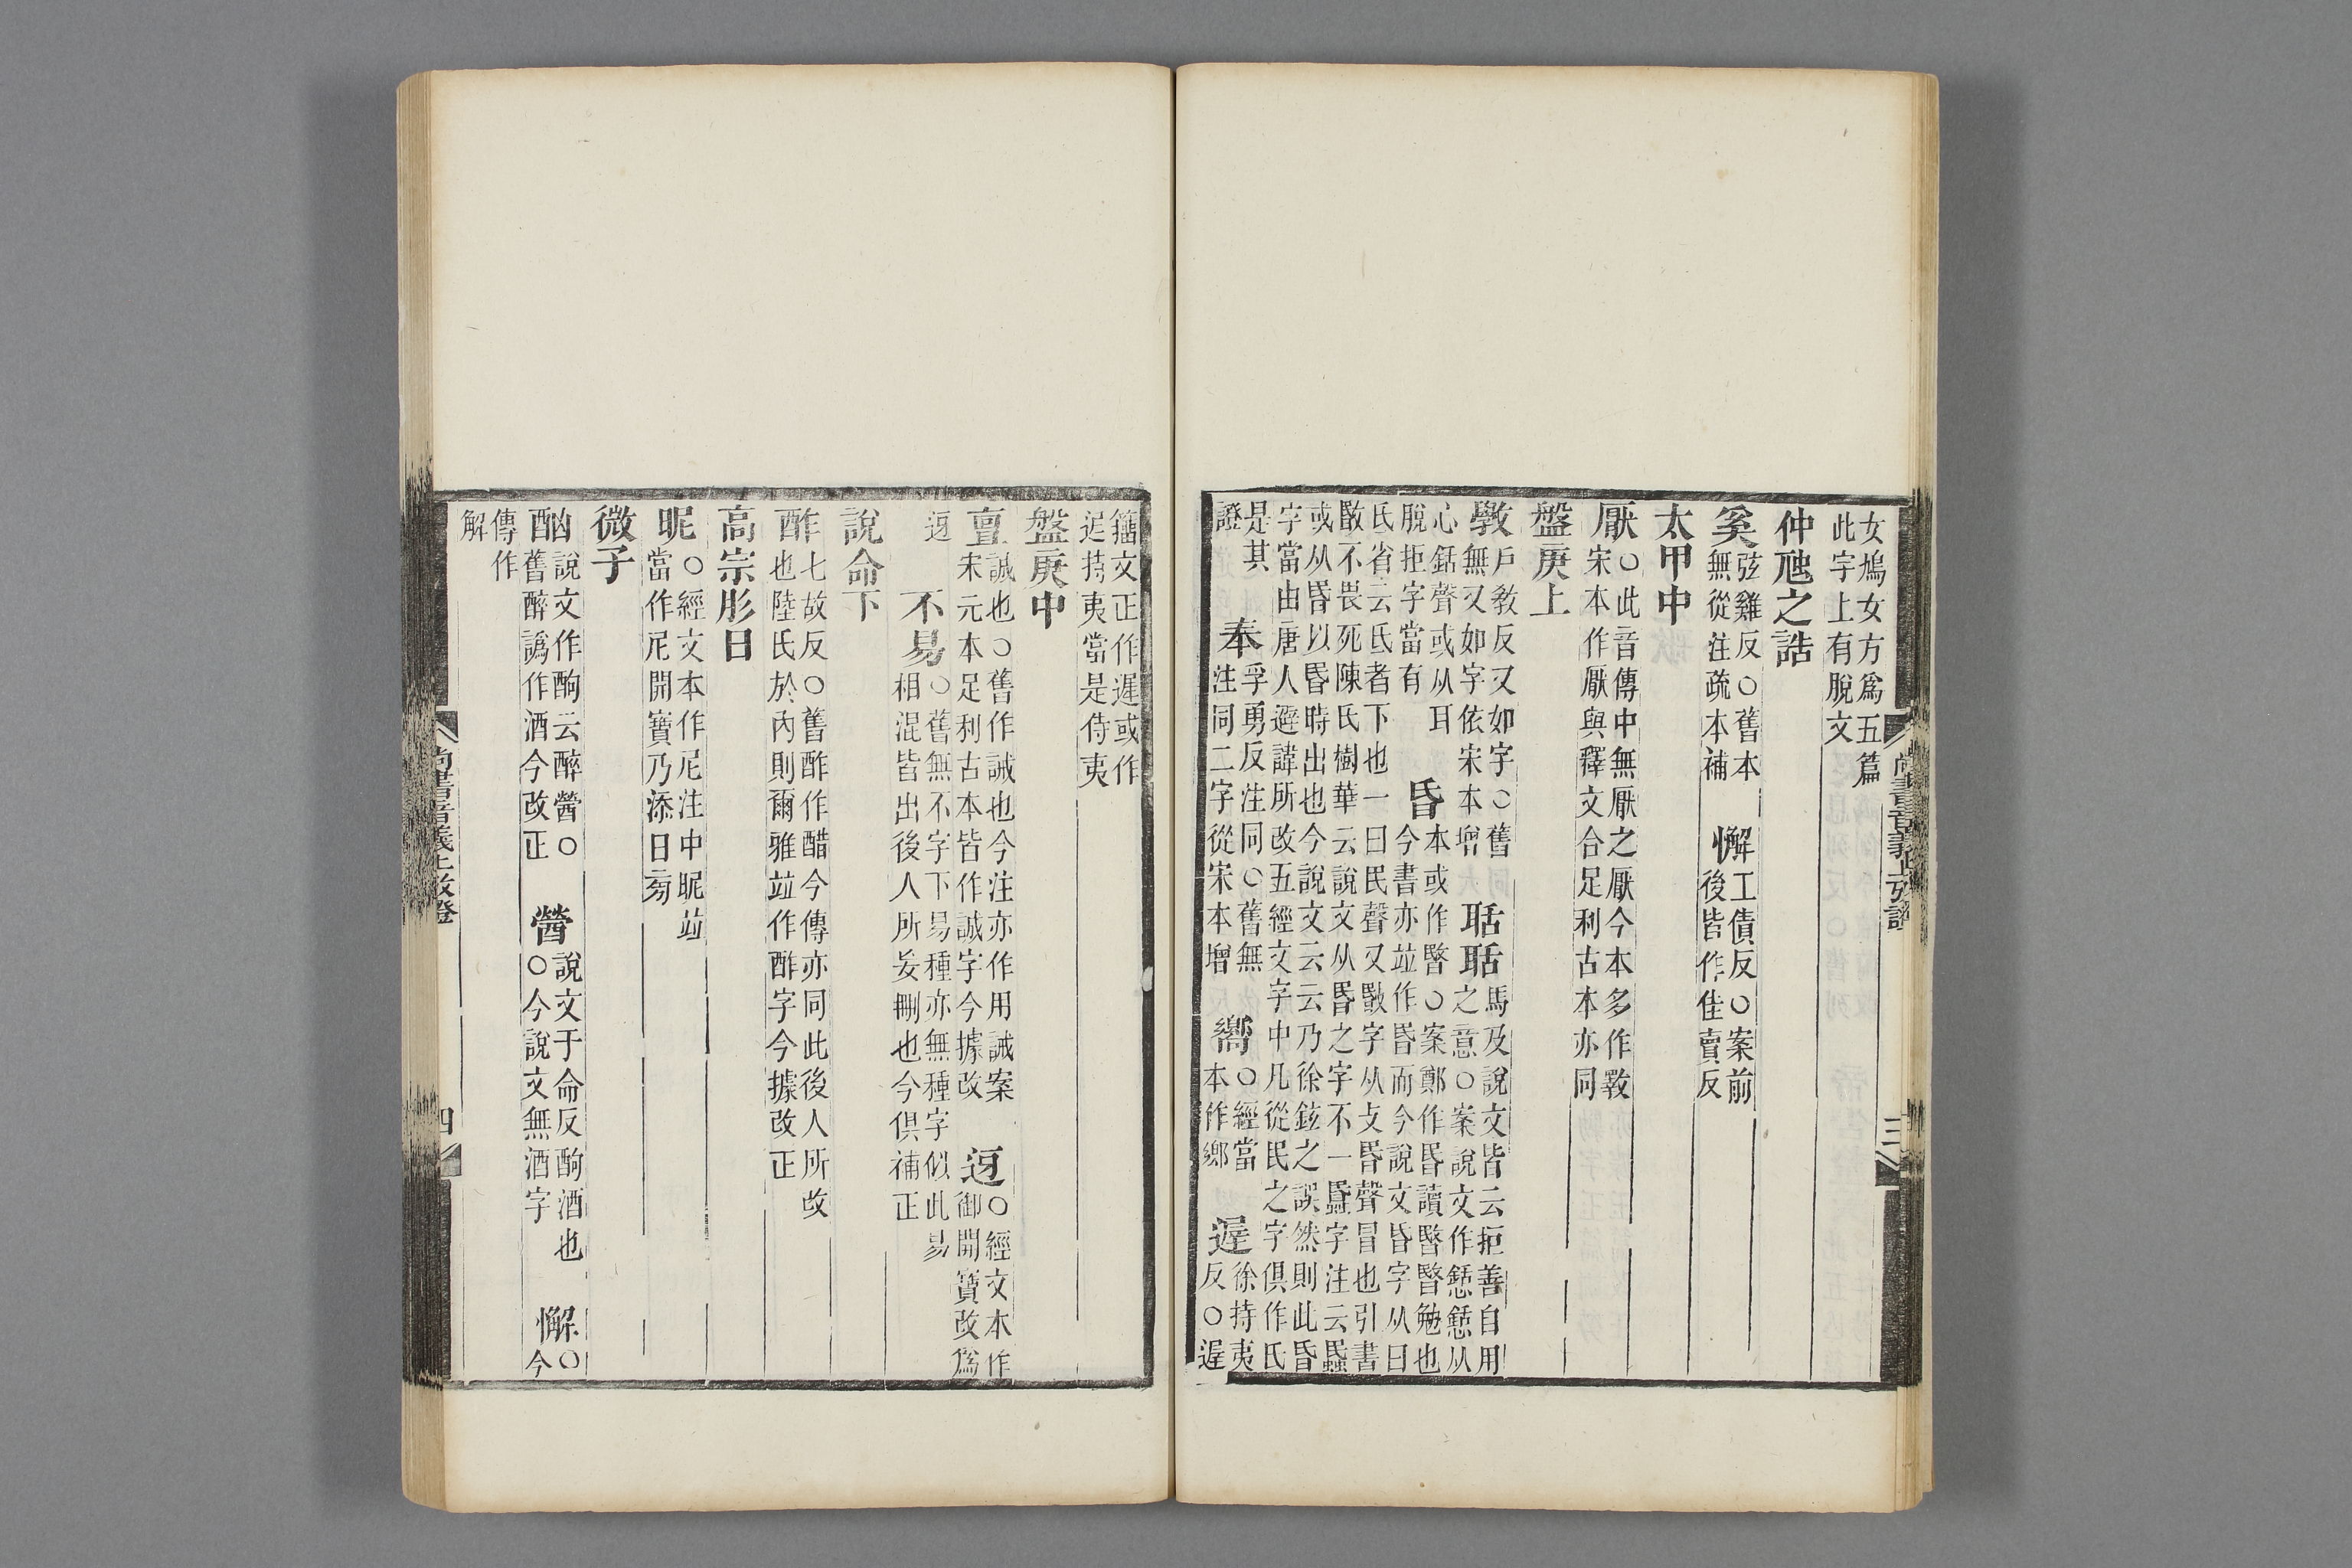 女鳩女方爲五篇
此字上有脫文
仲虺之誥
奚弦雞反○舊本
無從注疏本補
懈工債反○案前
後皆作佳賣反
太甲中
厭○此音傳中無厭之厭今本多作斁
宋本作厭與釋文合足利古本亦同
盤庚上
斆戶教反又如字○舊
無又如字依宋本增
聒聒馬及說文皆云拒善自用
之意○案說文作𢡱𢡱从
心銛聲或从耳
脫拒字當有
昏本或作暋○案鄭作昏讀暋暋勉也
今書亦竝作昏而今說文昏字从日
氐省云氐者下也一曰民聲又敯字从攴昏聲冒也引書
敯不畏死陳氏樹華云說文从昏之字不一䘇字注云䘇
或从昏以昏時出也今說文云云乃徐鉉之誤然則此昏
字當由唐人避諱所改五經文字中凡從民之字俱作氏
是其
證
奉孚勇反注同○舊無
注同二字從宋本增
嚮○經當
本作鄉
遟徐持夷
反○遟
籒文正作遲或作
迡持夷當是侍夷
盤庚中
亶誠也○舊作誡也今注亦作用誡案
宋元本足利古本皆作誠字今據改
迓○經文本作
御開寶改爲
迓
不易○舊無不字下易種亦無種字似此易
相混皆出後人所妄刪也今俱補正
說命下
酢七故反○舊酢作醋今傳亦同此後人所改
也陸氏於內則爾雅竝作酢字今據改正
高宗肜日
昵○經文本作尼注中昵竝
當作尼開寶乃添日旁
微子
酗說文作酌云醉醟○
舊醉譌作酒今改正
醟說文于命反酌酒也
○今說文無酒字
懈○
今
傳作
解
尚書音義上攷證
三
尚書音義上攷證
四